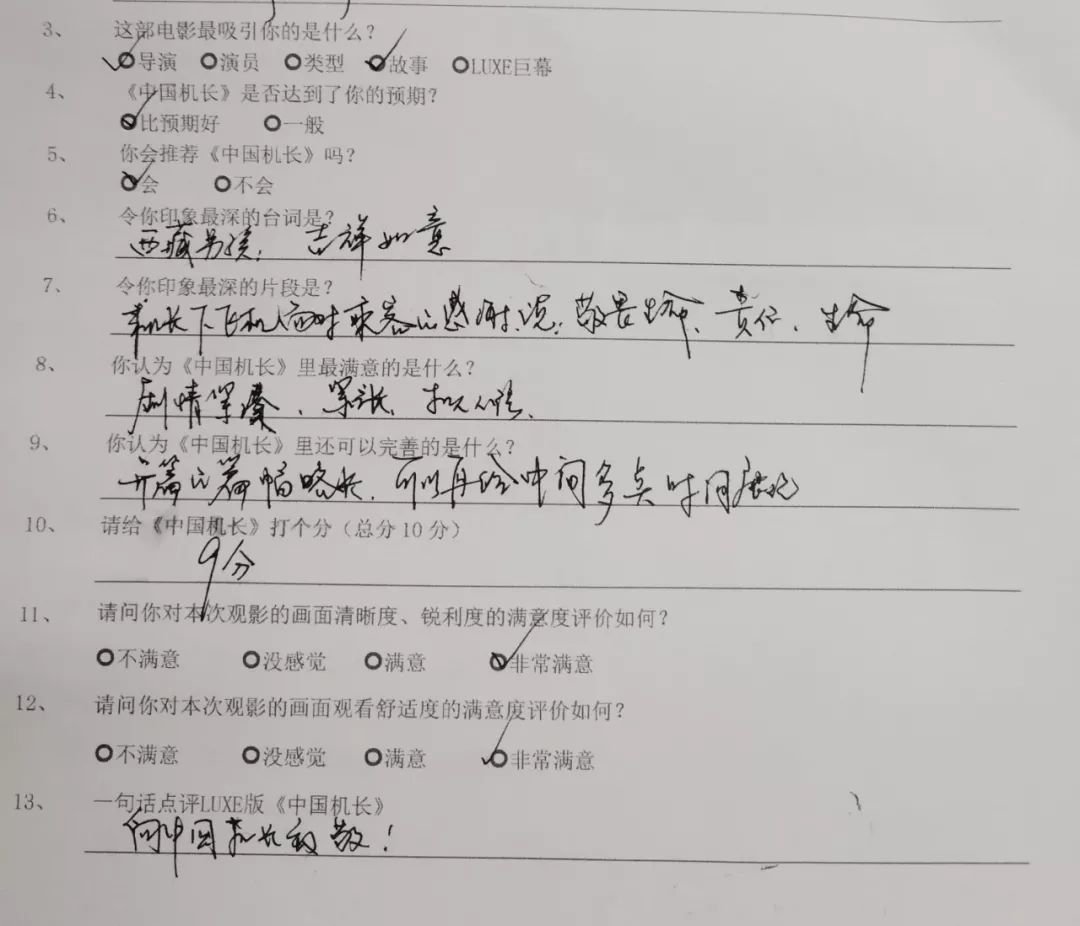 3、 这部电影最吸引你的是什么?
导演 演员 类型 故事 LUXE巨幕
4、 《中国机长》是否达到了你的预期?
比预期好 一般
5、 你会推荐《中国机长》吗?
会 不会
6、 令你印象最深的台词是?
西藏男孩: 吉祥如意
7、 令你印象最深的片段是?
机长下飞机面对乘客的感谢,说:敬畏生命、责任、生命
8、 你认为《中国机长》里最满意的是什么?
剧情紧凑、紧张、扣人心弦.
9、 你认为《中国机长》里还可以完善的是什么?
开篇的篇幅略长,可以再给中间多点时间展现
10、 请给《中国机长》打个分(总分10分)
9分
11、 请问你对本次观影的画面清晰度、锐利度的满意度评价如何?
不满意 没感觉 满意 非常满意
12、 请问你对本次观影的画面观看舒适度的满意度评价如何?
不满意 没感觉 满意 非常满意
13、 一句话点评LUXE版《中国机长》
向中国机长致敬!